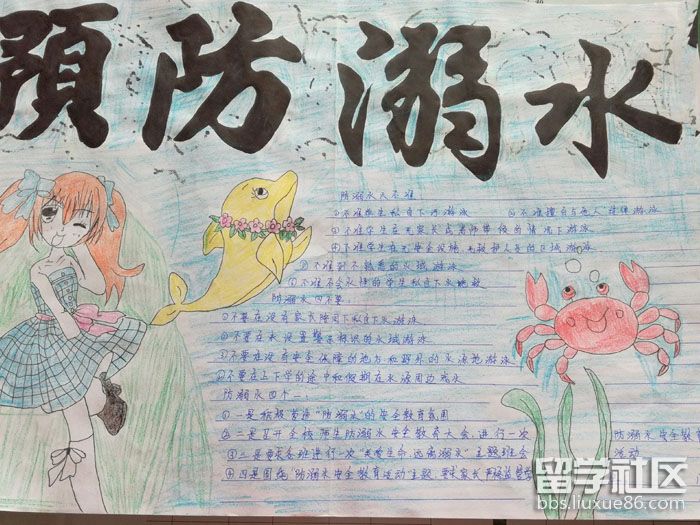 預防溺水
防溺水六不准
①不准学生私自下河游泳 ②不准擅自与他人结伴游泳
③不准学生在无家长或老师带领的情况下游泳
④不准学生在无安全设施、无救护人员的区域游泳
⑤不准到不熟悉的水域游泳
⑥不准不会水性的学生私自下水施救
防溺水四不要
①不要在没有家长陪同下私自下水游泳
②不要在未设置警示标识的水域游泳
③不要在没有安全保障的池内和野外的水源地游泳
④不要在上下学的途中和假期在水源周边戏水
防溺水四个一:
①一是积极营造"防溺水"的安全教育氛围
②二是召开全校师生防溺水安全教育大会,进行一次
防溺水安全教育
活动
③三是要求各班进行一次"关爱生命,远离溺水"主题班会
④四是围绕"防溺水安全教育活动"主题,要求家长
留学社区
bbs.liuxue86.com